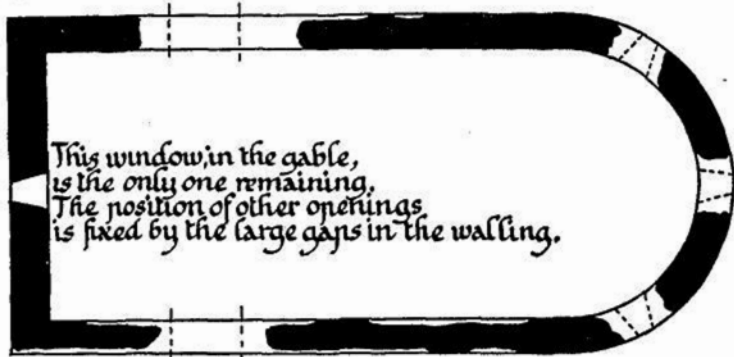 This window, in the gable,
is the only one remaining.
The position of other openings
is fixed by the large gaps in the walling.